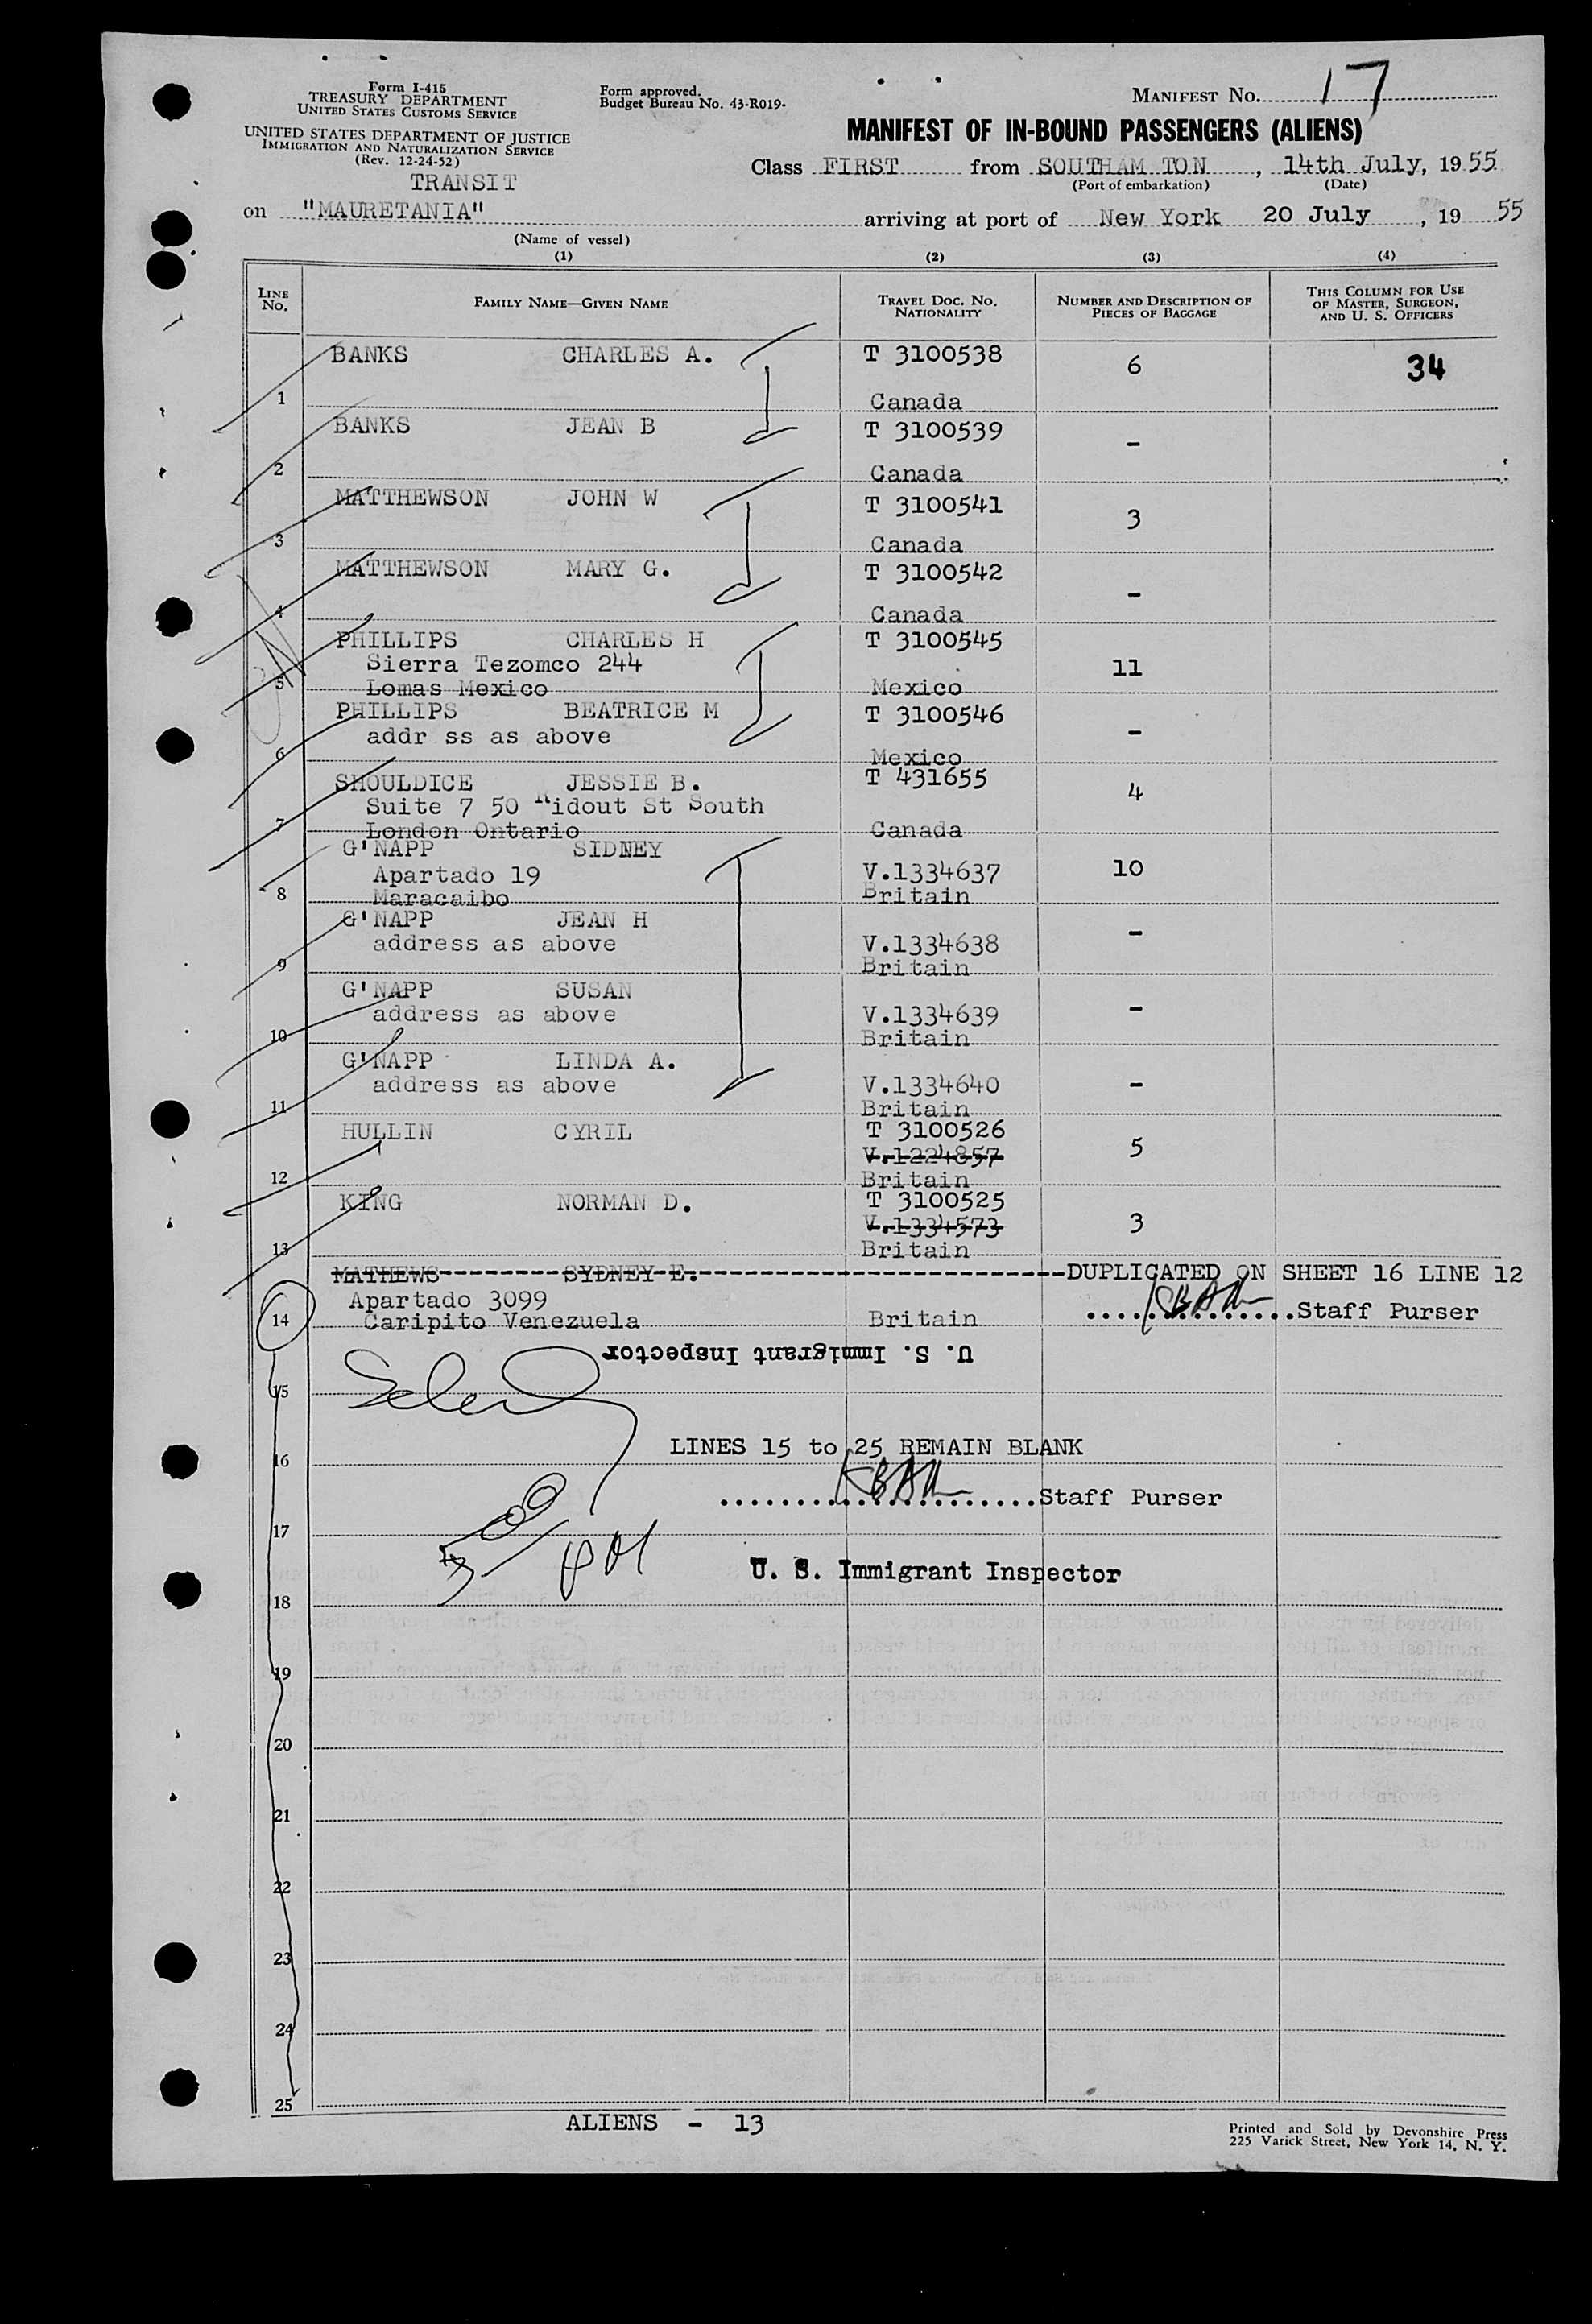 Form I-415
TREASURY DEPARTMENT
UNITED STATES CUSTOMS SERVICE
UNITED STATES DEPARTMENT OF JUSTICE
IMMIGRATION AND NATURALIZATION SERVICE
(Rev. 12-24-52)
TRANSIT
Form approved.
Budget Bureau No. 43-R019-
MANIFEST No. 17
MANIFEST OF IN-BOUND PASSENGERS (ALIENS)
Class FIRST from SOUTHAM TON, 14th July, 1955
(Port of embarkation) (Date)
on "MAURETANIA" arriving at port of New York 20 July, 19 55
(Name of vessel)
(1) (2) (3) (4)
LINE No. FAMILY NAME—GIVEN NAME TRAVEL DOC. NO. NATIONALITY NUMBER AND DESCRIPTION OF PIECES OF BAGGAGE THIS COLUMN FOR USE OF MASTER, SURGEON, AND U. S. OFFICERS
BANKS CHARLES A. T 3100538 6 34
1 Canada
BANKS JEAN B T 3100539 -
2 Canada
MATTHEWSON JOHN W T 3100541 3
3 Canada
MATTHEWSON MARY G. T 3100542 -
4 Canada
PHILLIPS CHARLES H T 3100545
Sierra Tezomco 244 11
5 Lomas Mexico Mexico
PHILLIPS BEATRICE M T 3100546
addr ss as above -
6 Mexico
SHOULDICE JESSIE B. T 431655
Suite 7 50 Ridout St South 4
7 London Ontario Canada
G'NAPP SIDNEY
Apartado 19 V.1334637 10
8 Maracaibo Britain
G'NAPP JEAN H
address as above V.1334638 -
9 Britain
G'NAPP SUSAN
address as above V.1334639 -
10 Britain
G'NAPP LINDA A.
address as above V.1334640 -
11 Britain
HULLIN CYRIL T 3100526
V.1224857 5
12 Britain
KING NORMAN D. T 3100525
V.1334573 3
13 Britain
MATHEWS--------SYDNEY E.------------------------DUPLICATED ON SHEET 16 LINE 12
Apartado 3099 ..............Staff Purser
14 Caripito Venezuela Britain
U. S. Immigrant Inspector
15
LINES 15 to 25 REMAIN BLANK
16
.....................Staff Purser
17
U. S. Immigrant Inspector
18
19
20
21
22
23
24
25
ALIENS - 13
Printed and Sold by Devonshire Press
225 Varick Street, New York 14, N. Y.